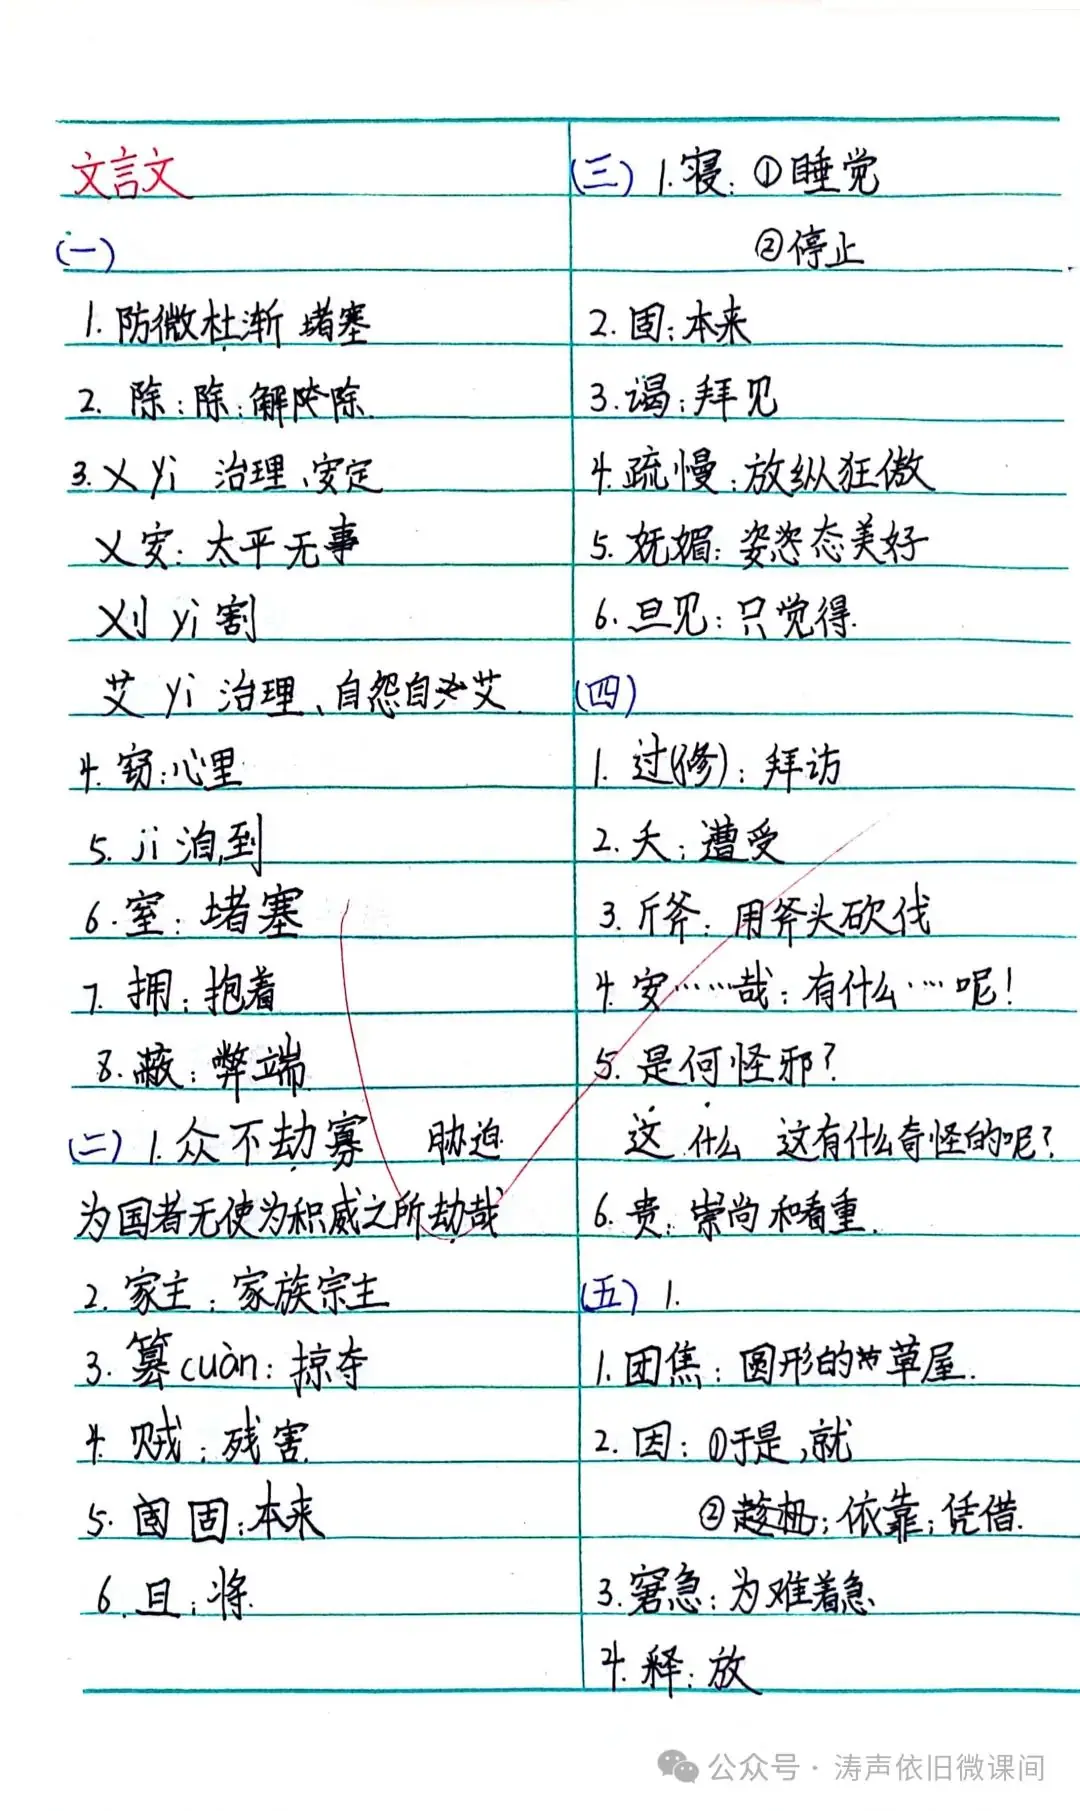 文言文
(一)
1. 防微杜渐 堵塞
2. 除：除；解除
3. 乂 yì 治理、安定
乂安：太平无事
刈 yì 割
艾 yì 治理、自怨自艾
4. 窃：心里
5. jì 洎，到
6. 窒：堵塞
7. 拥：抱着
8. 蔽：弊端
(二) 1. 众不劫寡 胁迫
为国者无使为积威之所劫哉
2. 家主：家族宗主
3. 篡 cuàn：掠夺
4. 贼：残害
5. 固：本来
6. 且：将
(三) 1. 寝：①睡觉
②停止
2. 固：本来
3. 谒：拜见
4. 疏慢：放纵狂傲
5. 妩媚：姿态美好
6. 旦见：只觉得
(四)
1. 过(修)：拜访
2. 夭：遭受
3. 斤斧：用斧头砍伐
4. 安……哉：有什么……呢！
5. 是何怪邪？
这 什么 这有什么奇怪的呢？
6. 贵：崇尚和看重
(五) 1.
1. 团焦：圆形的草屋
2. 因：①于是，就
②趁机；依靠；凭借
3. 窘急：为难着急
4. 释：放
公众号·涛声依旧微课间